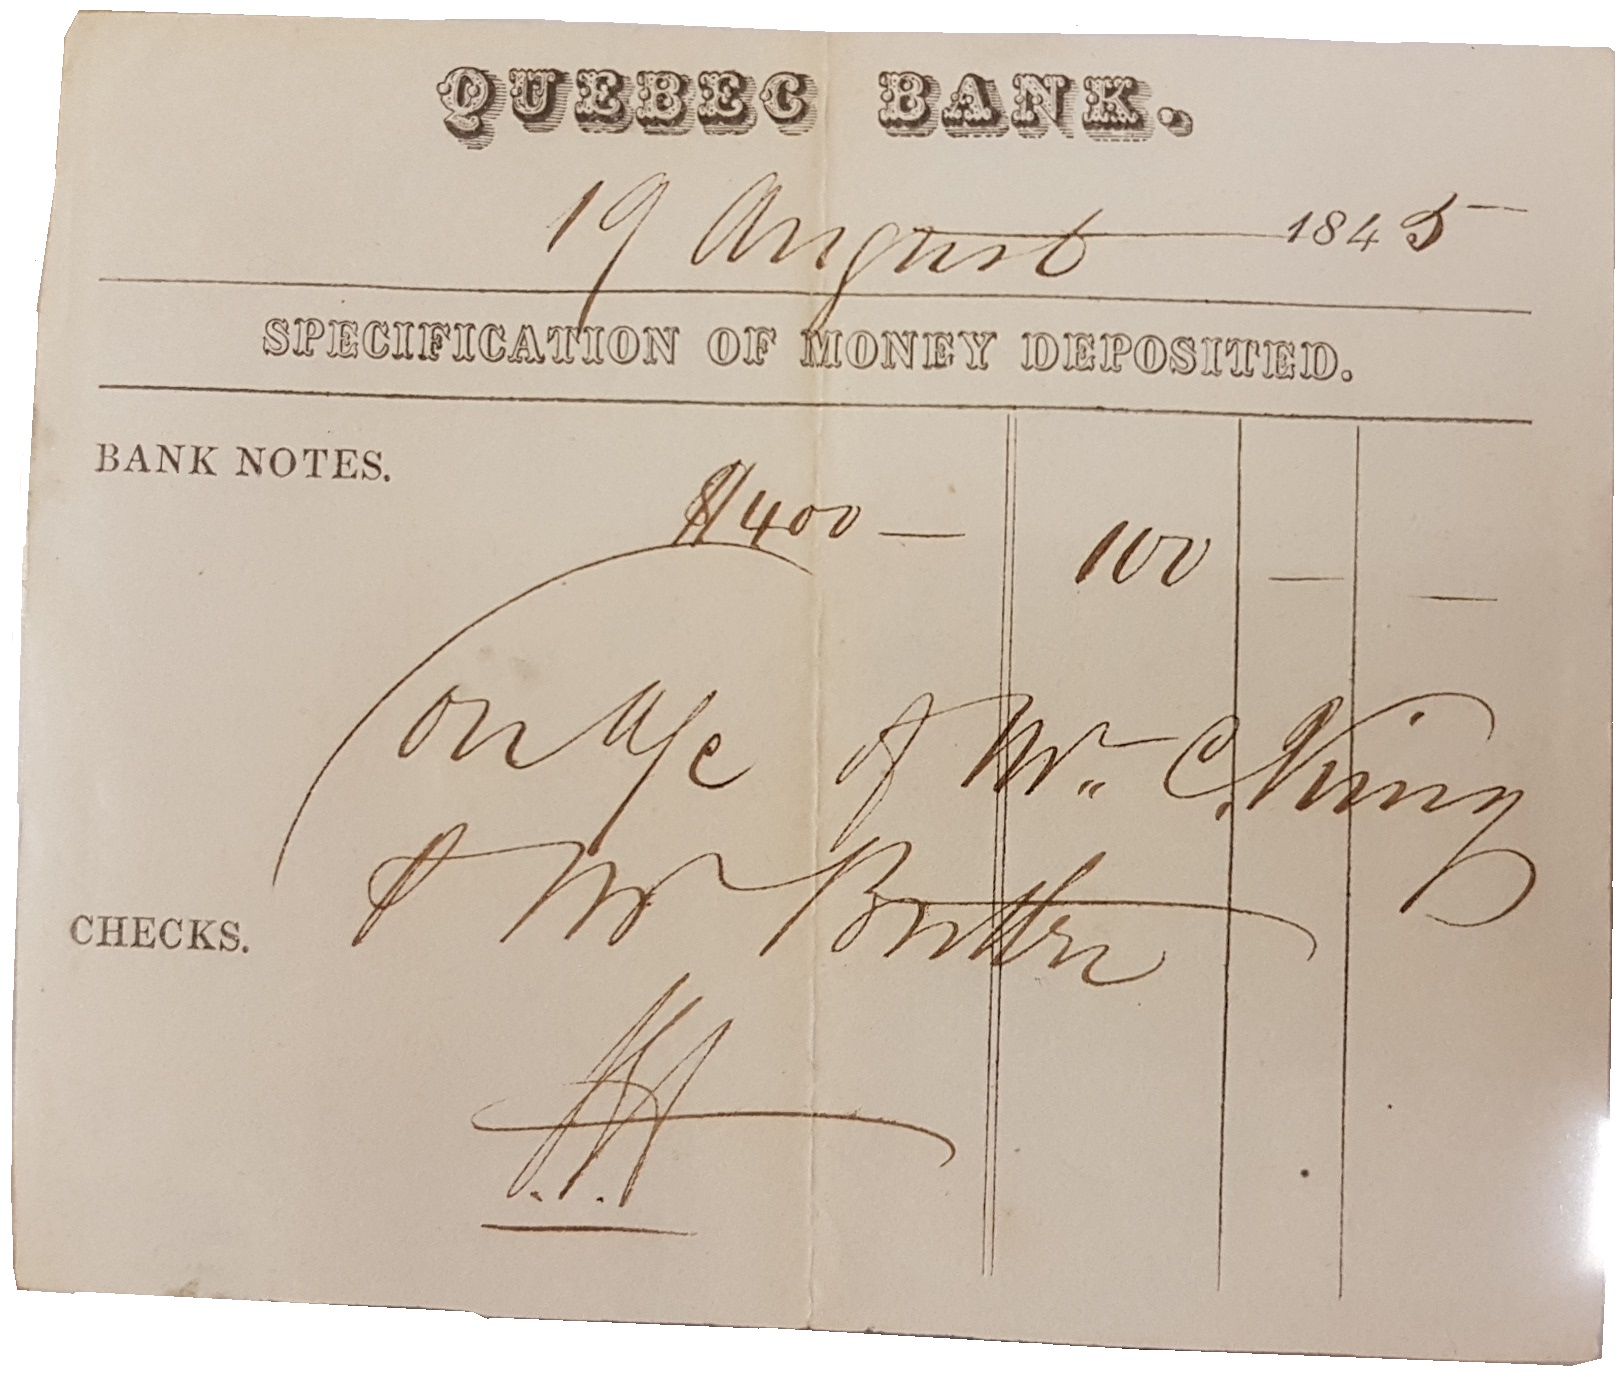 QUEBEC BANK.
19 August 1845
SPECIFICATION OF MONEY DEPOSITED.
BANK NOTES.
$400 — 100 — —
on a/c of Mr. C. King
& Mr
CHECKS.